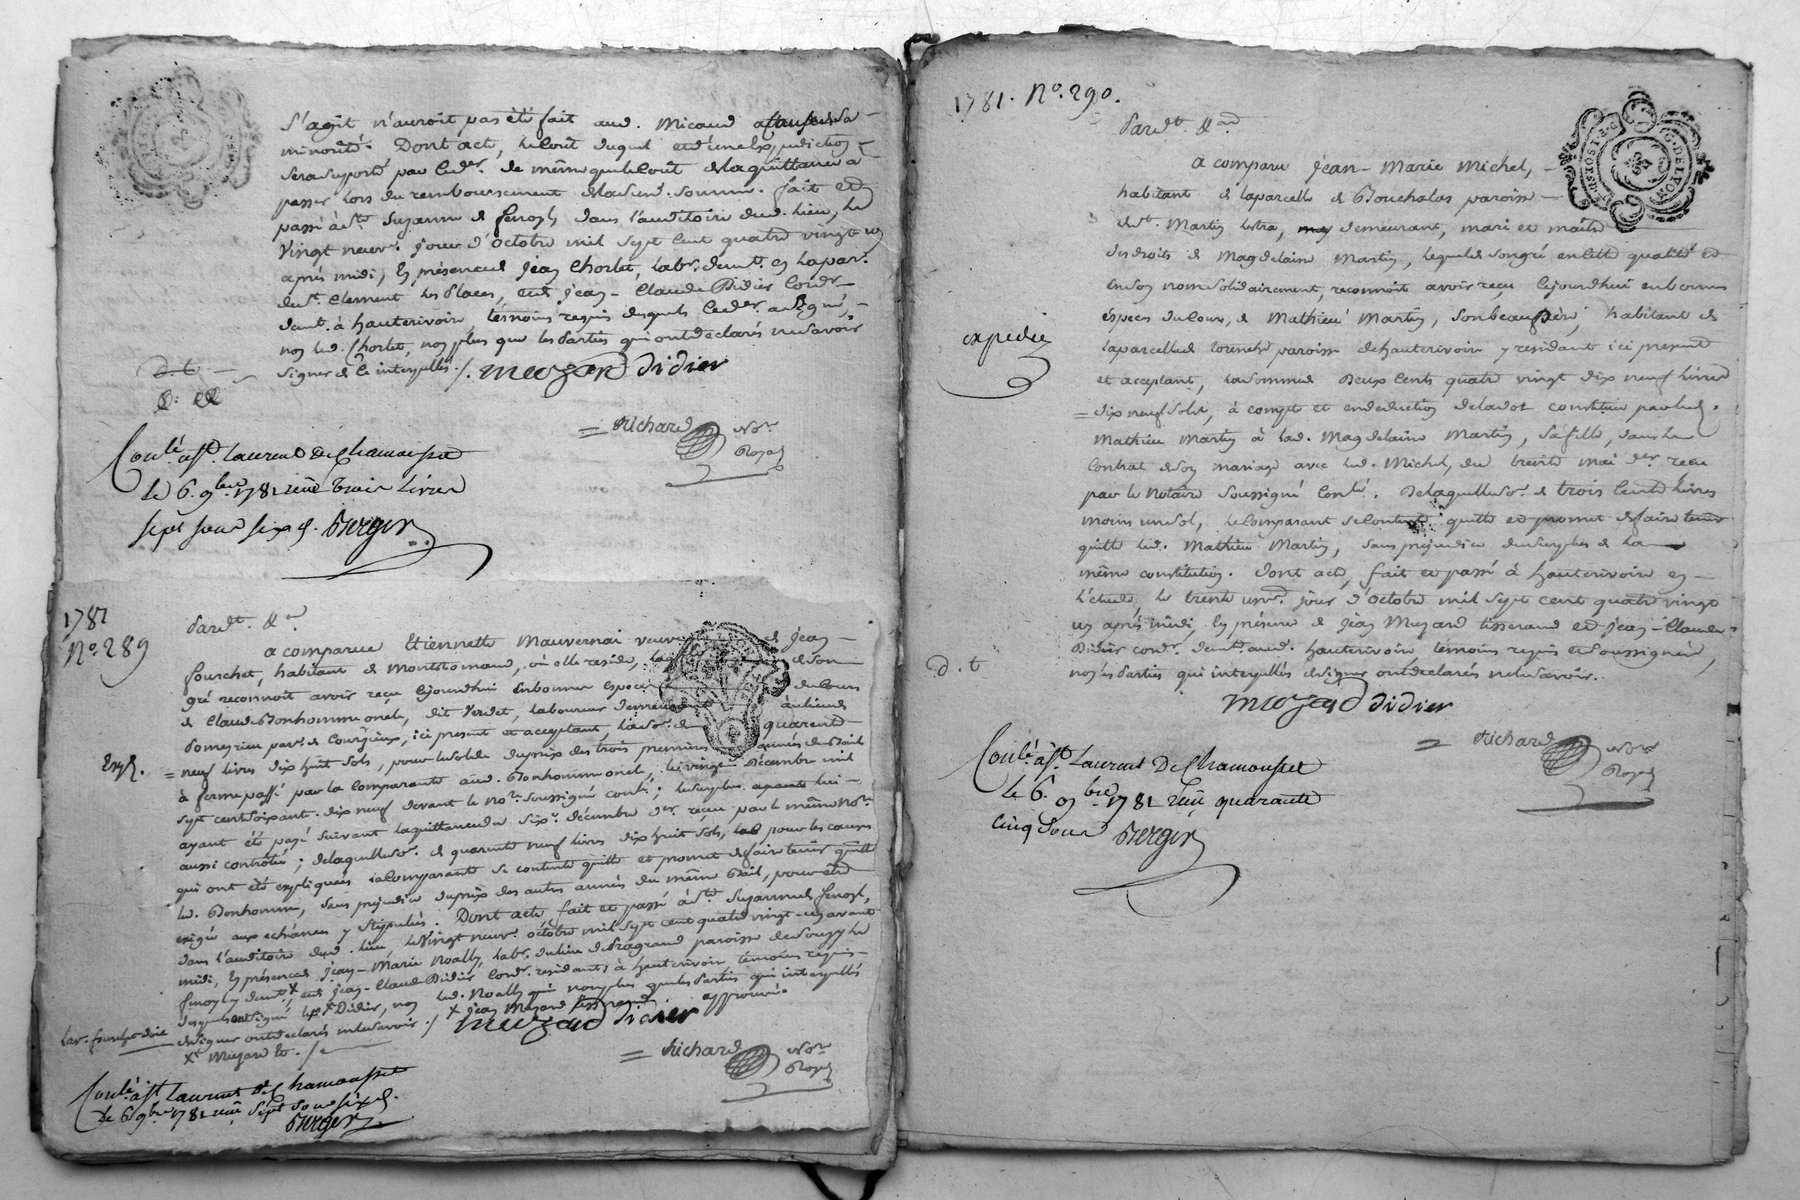 S'agit n'auroit pas été fait aud. Micaud a cause de sa
minorité. Dont acte, le Cout duquel et d'une expédition
sera suporté par led. der de même que le Coût de la quittance à
passer lors du remboursement de lad. somme. fait et
passé à Ste Suzanne de fenoyl, dans l'auditoire dud. lieu, le
Vingt neuv.e jour d'Octobre mil sept cent quatre vingt un
après midi, En présence de Jean Chorlet, lab.r demt. en la par.
de St. Clement les Places, et de Jean-Claude Didier Cordr
demt. à hauterivoire témoins requis desquels led. der a signé,
non led. Chorlet, non plus que les Parties qui ont declarés ne le savoir
signer de ce interpellés ./. mezard didier
D. t
= Richard Nore
Royal
Conlé à St. Laurent De Chamousset
le 6. 9bre 1781 reçu trois Livres
sept sous six d. Purger
1781
No. 289
Pardt. &a
a comparue Etiennette Mauvernai veuve de Jean
fourchet, habitant de Montromand, où elle reside, de son
gré reconnoit avoir reçu Ejourdhui En bonnes espèces du Cours
de Claude Bonhomme oncle, dit Verdet, laboureur demeurant au lieu de
Pomeyrieu par. de Courzieux, ici present et acceptant, la so. de quarente
Exp.
= neuf livres dix huit sols, pour le solde du prix des trois premieres années du Bail
à ferme passé par la Comparante aud. Bonhomme oncle, le vingt Décembre mil
sept cent soixant-dix neuf devant le No.re soussigné conlé; le surplus lui
ayant été payé suivant la quittance du six.e décembre der. reçue par le même No.re
aussi contrôlée; de laquelle so. de quarente neuf livres dix huit sols, pour les causes
qui ont été expliquées la Comparante se contente quitte et promet de faire tenir quitte
led. Bonhomme, sans prejudice du prix des autres années du même Bail, pour être
exigé aux echéances y stipulées. Dont acte, fait et passé à Ste. Suzanne de fenoyl,
dans l'auditoire dud. lieu le Vingt neuv.e octobre mil sept cent quatre vingt-un avant
midi, En présence de Jean-Marie Noally, lab.r du lieu de Pragrand paroisse de Souzy he
fenoyl y demt. X et de Jean-Claude Didier Cordr. residants à hauterivoire témoins requis
desquels ont signé led. X Didier, non led. Noally qui non plus que les Parties qui interpellés
de signer ont declarés ne le savoir ./. X Jean Mezard tisserand approuvé.
X Mezard &.
mezard didier
= Richard Nore
Royal
Conlé à St Laurent de Chamousset
le 6. 9bre 1781 reçu sept sous six d.
Purger
1781. No. 290.
Pardt. &a
a comparu Jean-Marie Michel,
habitant de la parcelle de Boucholas paroisse
de St. Martin lestra, y demeurant, mari et maitre
des droits de Magdelaine Martin, lequel de son gré en cette qualité et
en son nom solidairement, reconnoit avoir reçu Cejourdhui en bonnes
especes du Cours, de Mathieu Martin, son beau Pere, habitant de
la parcelle de paroisse de hauterivoire y residant ici present
et acceptant, la somme de Deux Cents quatre vingt dix neuf livres
= dix neuf sols, à compte et en deduction de la dot constituée par led.
Mathieu Martin à lad. Magdelaine Martin, sa fille, dans le
Contrat de son mariage avec led. Michel, du trente mai der. reçu
par le Notaire soussigné Conlé. De laquelle so. de trois Cents livres
moins un sol, le Comparant se contente quitte et promet de faire tenir
quitte led. Mathieu Martin, sans prejudice du surplus de la
même constitution. Dont acte, fait et passé à hauterivoire en
l'étude le trente un.e jour d'Octobre mil sept cent quatre vingt
un après midi, En présence de Jean Mezard tisserand et Jean-Claude
Didier Cordr. demts. aud. hauterivoire témoins requis et soussignés,
non les Parties qui interpellés de signer ont declarés ne le savoir.
expediée
D. t
mezard didier
= Richard Nore
Royal
Conlé à St. Laurent De Chamousset
le 6. 9bre 1781 reçu quarante
cinq sous Purger
G. DE LYON